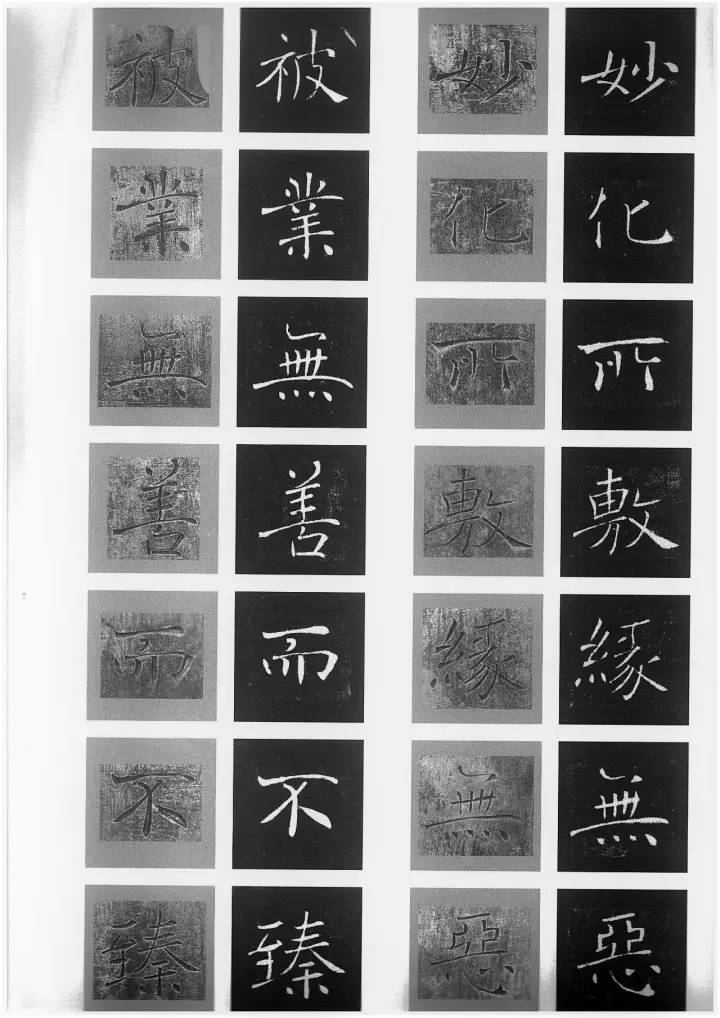 被業無善而不臻
被業無善而不臻
妙化所敷緣無惡
妙化所敷緣無惡